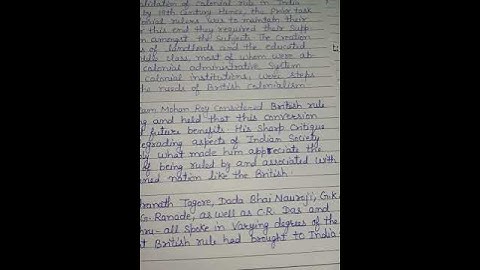 lidation of colonial rule in India
by 19th Century Hence, the Prior task
onial rulers was to maintain their
this end they required their Supp
n amongst the Subjects The Creation
s of landlords and the educated
ddle class, most of whom were ab
colonial administrative System
Colonial institutions, were Steps
the needs of British Colonialism
am Mohan Roy Considered British rule
ng and held that this conversion
future benefits. His Sharp Critique
egrading aspects of Indian Society
ly what made him appreciate the
of being ruled by and associated with
ened nation like the British.
dranath Tagore, Dada Bhai Nauroji, G.K
G. Ranade, as well as C.R. Das and
hru- all Spoke in Varying degrees of the
t British rule had brought to India